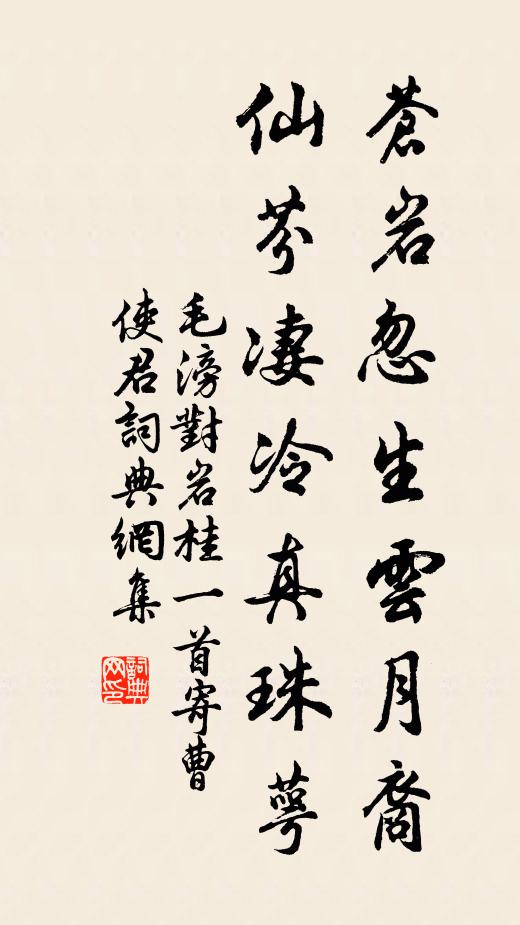 蒼岩忽生雲月裔
仙芬淒冷真珠萼
毛滂對岩桂一首寄曹
使君詞典網集
詞典网印